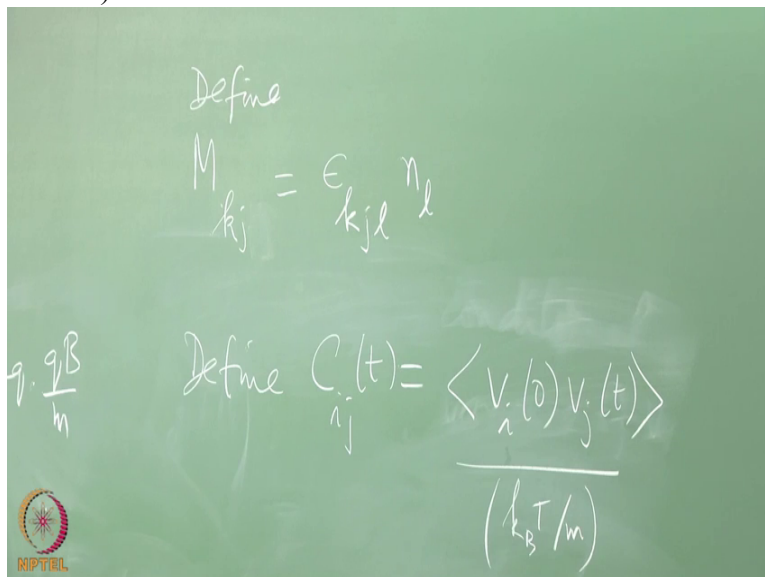 Define
M_{kj} = ϵ_{kjl} n_l
q. qB/m
Define C_{ij}(t) = <v_i(0) v_j(t)> / (k_B T/m)
NPTEL